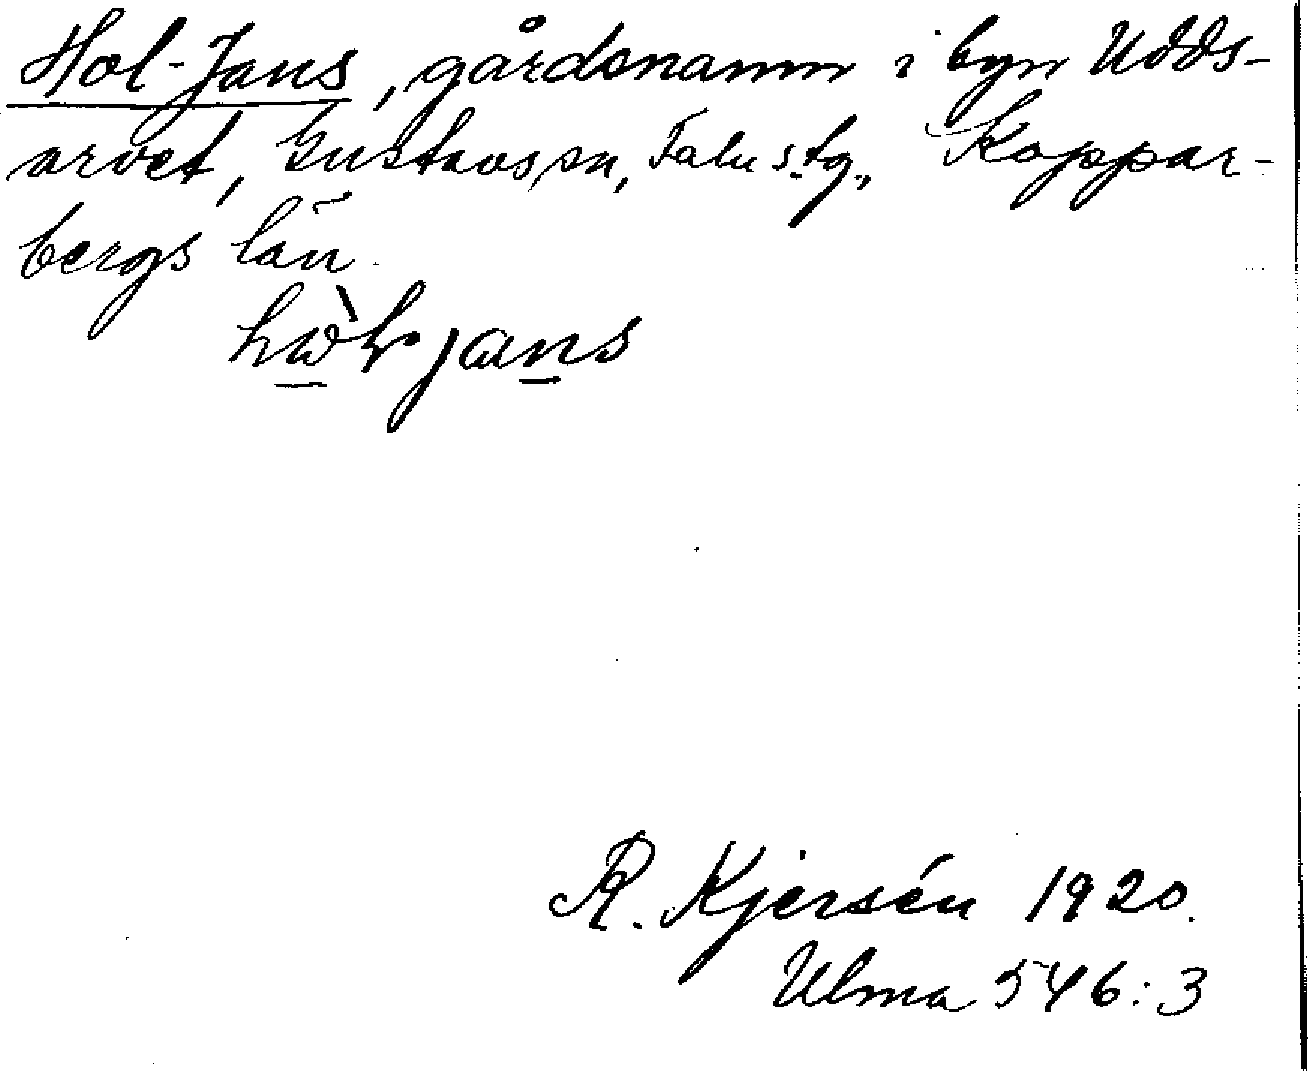 Hol-Jans, gårdsnamn i byn Udds-
arvet, Gustavs sn, Falu stg., Koppar-
bergs län.
jans
R. Kjersén 1920.
Ulma 546:3